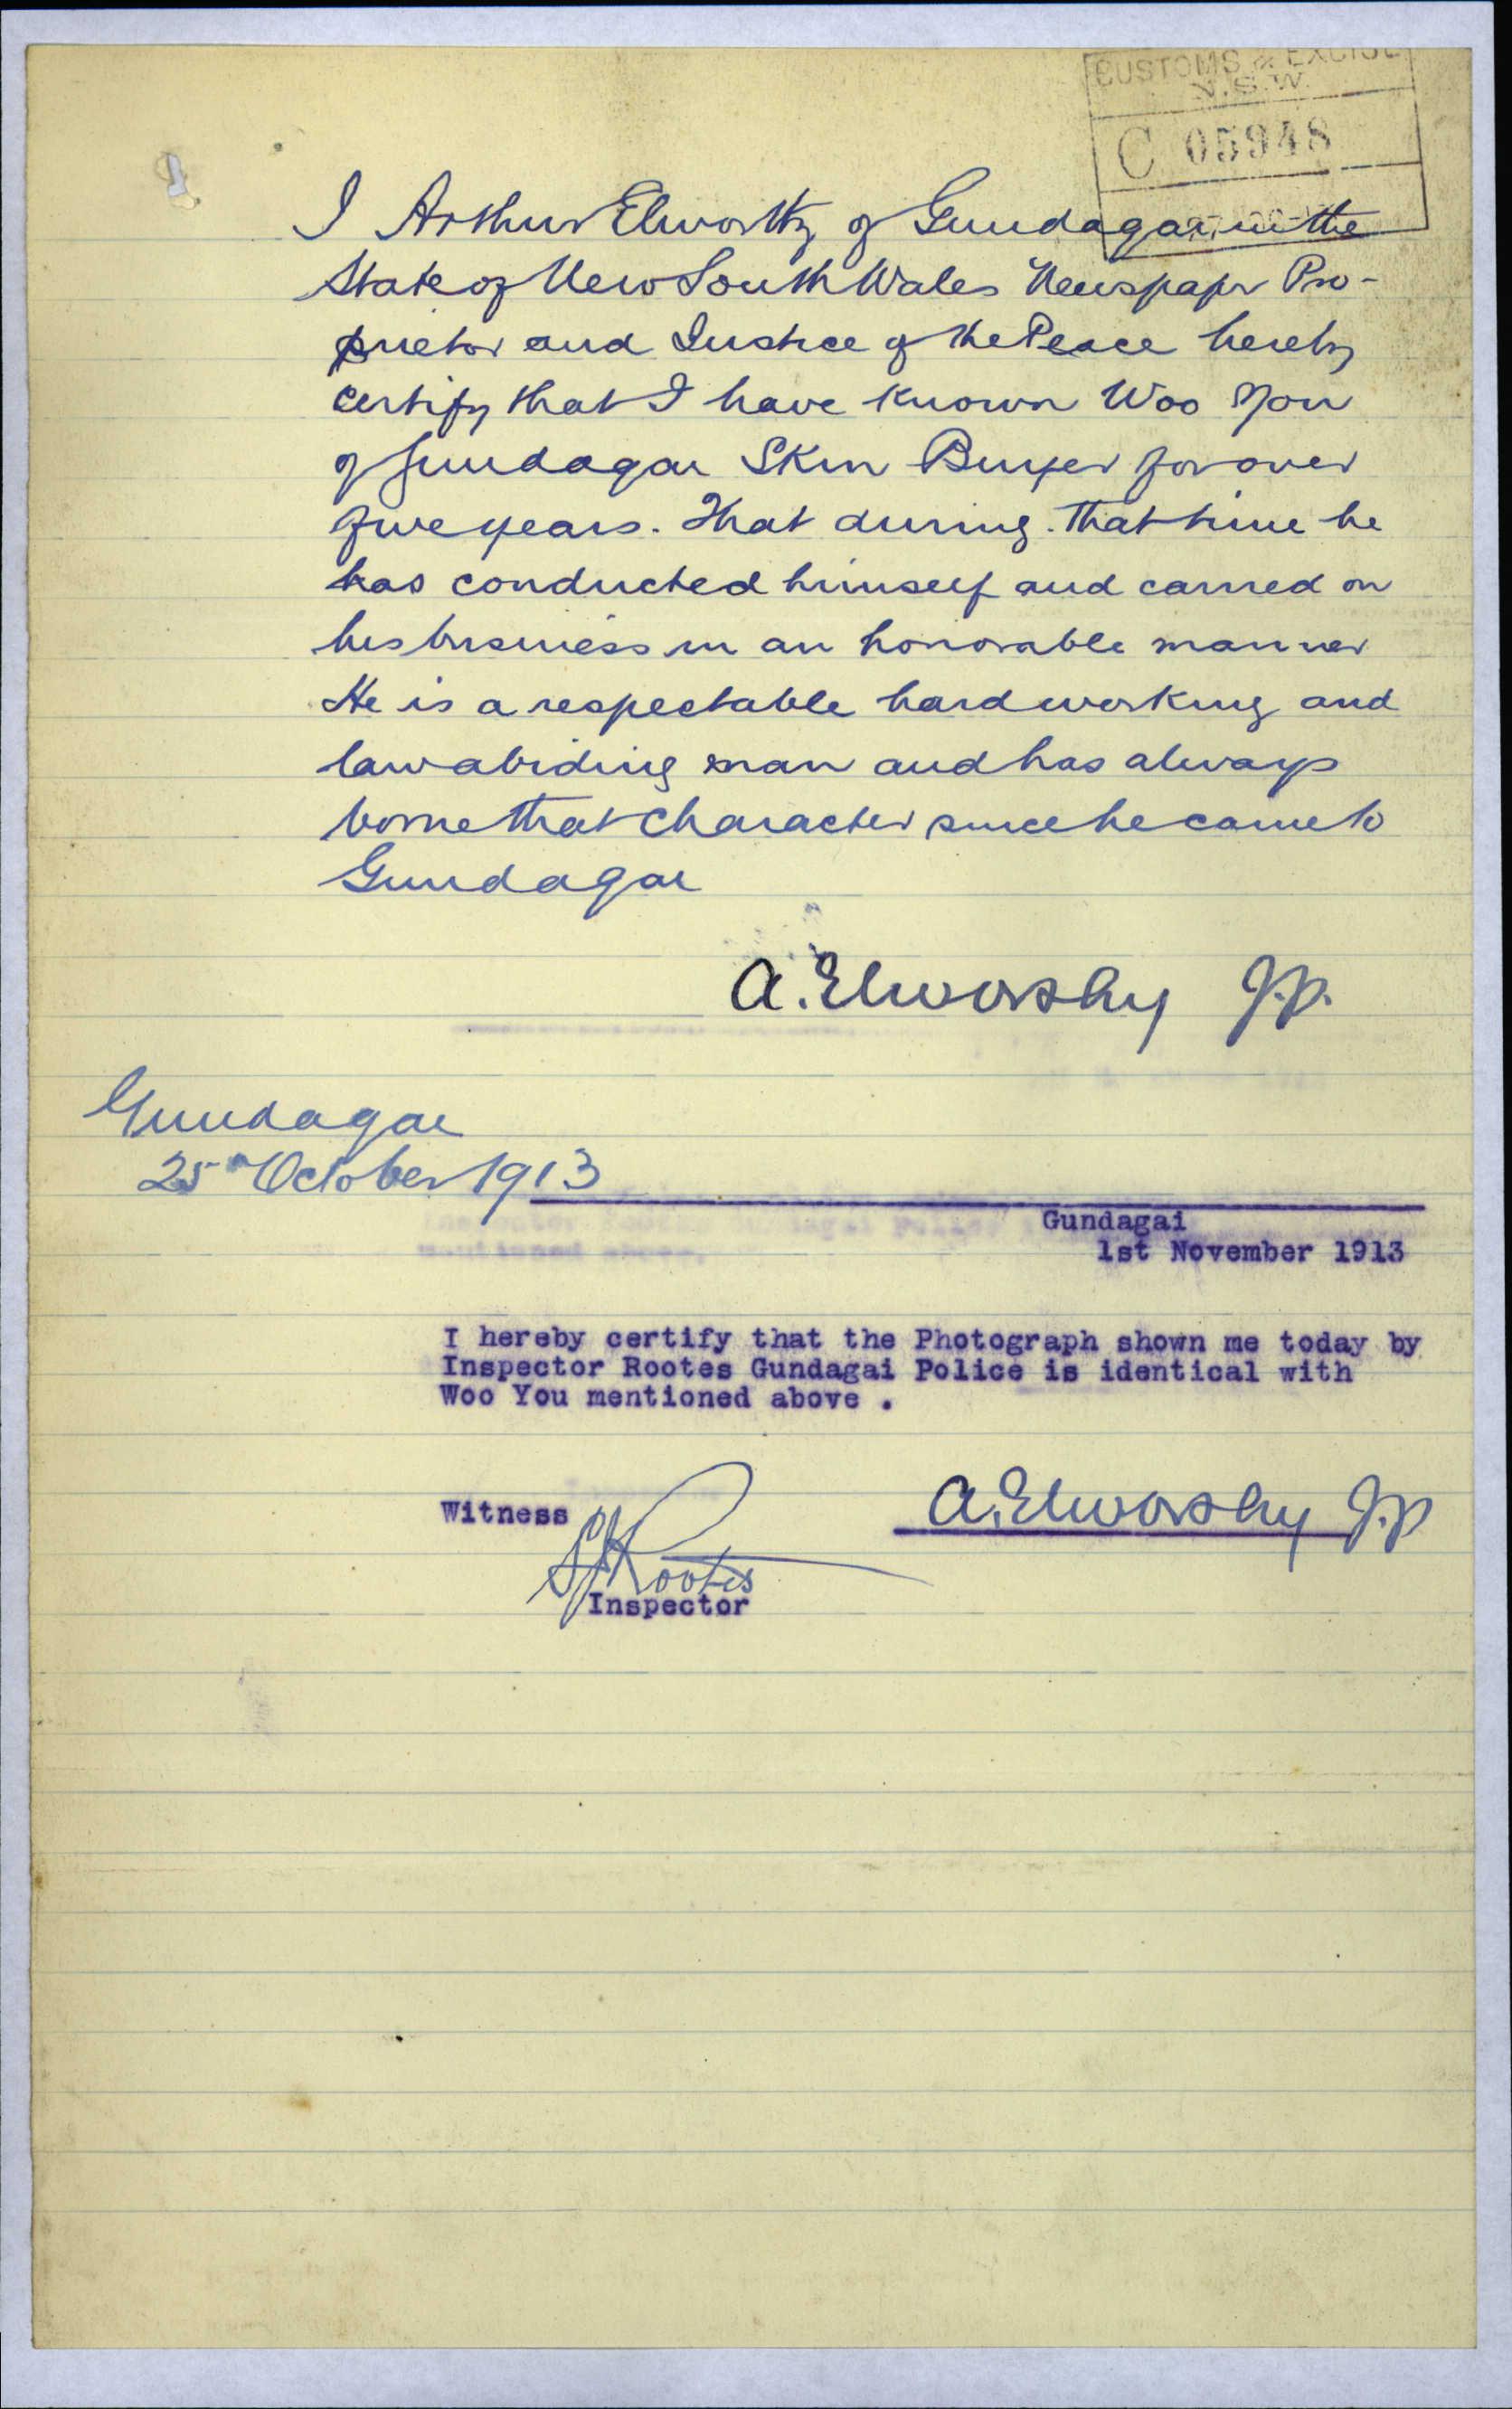 CUSTOMS & EXCISE
N.S.W.
C 05948
I Arthur Elworthy of Gundagai in the
State of New South Wales Newspaper Pro-
prietor and Justice of the Peace hereby
certify that I have known Woo You
of Gundagai Skin Buyer for over
five years. That during that time he
has conducted himself and carried on
his business in an honorable manner
He is a respectable hardworking and
law abiding man and has always
borne that character since he came to
Gundagai
A. Elworthy J.P.
Gundagai
25th October 1913
Gundagai
1st November 1913
I hereby certify that the Photograph shown me today by
Inspector Rootes Gundagai Police is identical with
Woo You mentioned above .
Witness
A. Elworthy J.P
Rootes
Inspector